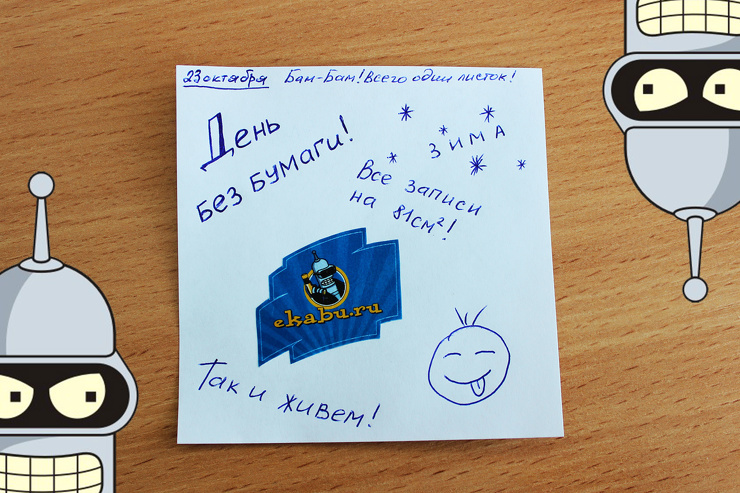 23 октября Бам-Бам! Всего один листок!
День
без бумаги!
ЗИМА
Все записи
на 81см²!
ekabu.ru
Так и живем!